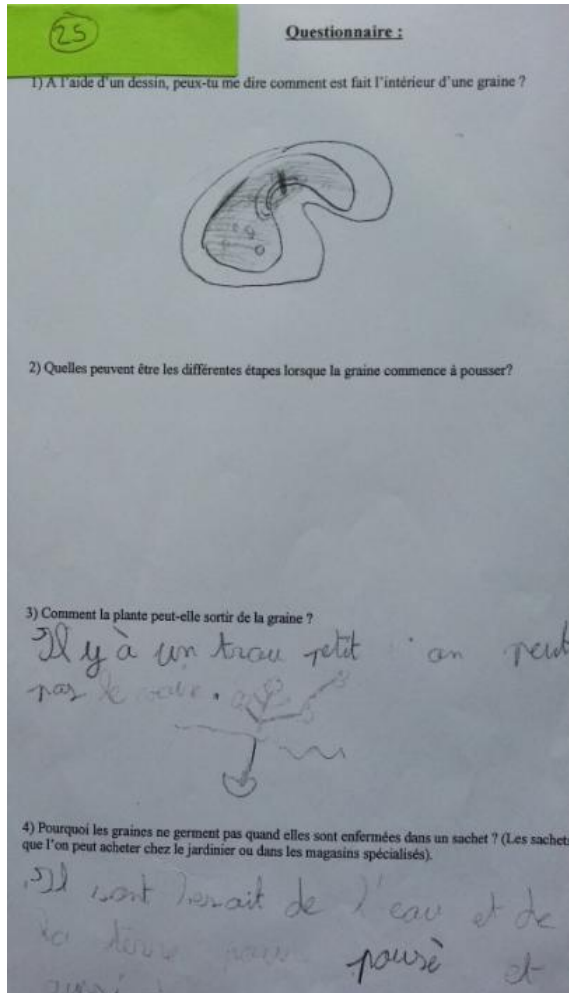 25
Questionnaire :
1) A l'aide d'un dessin, peux-tu me dire comment est fait l'intérieur d'une graine ?
2) Quelles peuvent être les différentes étapes lorsque la graine commence à pousser?
3) Comment la plante peut-elle sortir de la graine ?
Il y à un trau petit on peut
pas le voir.
4) Pourquoi les graines ne germent pas quand elles sont enfermées dans un sachet ? (Les sachets
que l'on peut acheter chez le jardinier ou dans les magasins spécialisés).
Il sont de l'eau et de
la terre pour pousè et